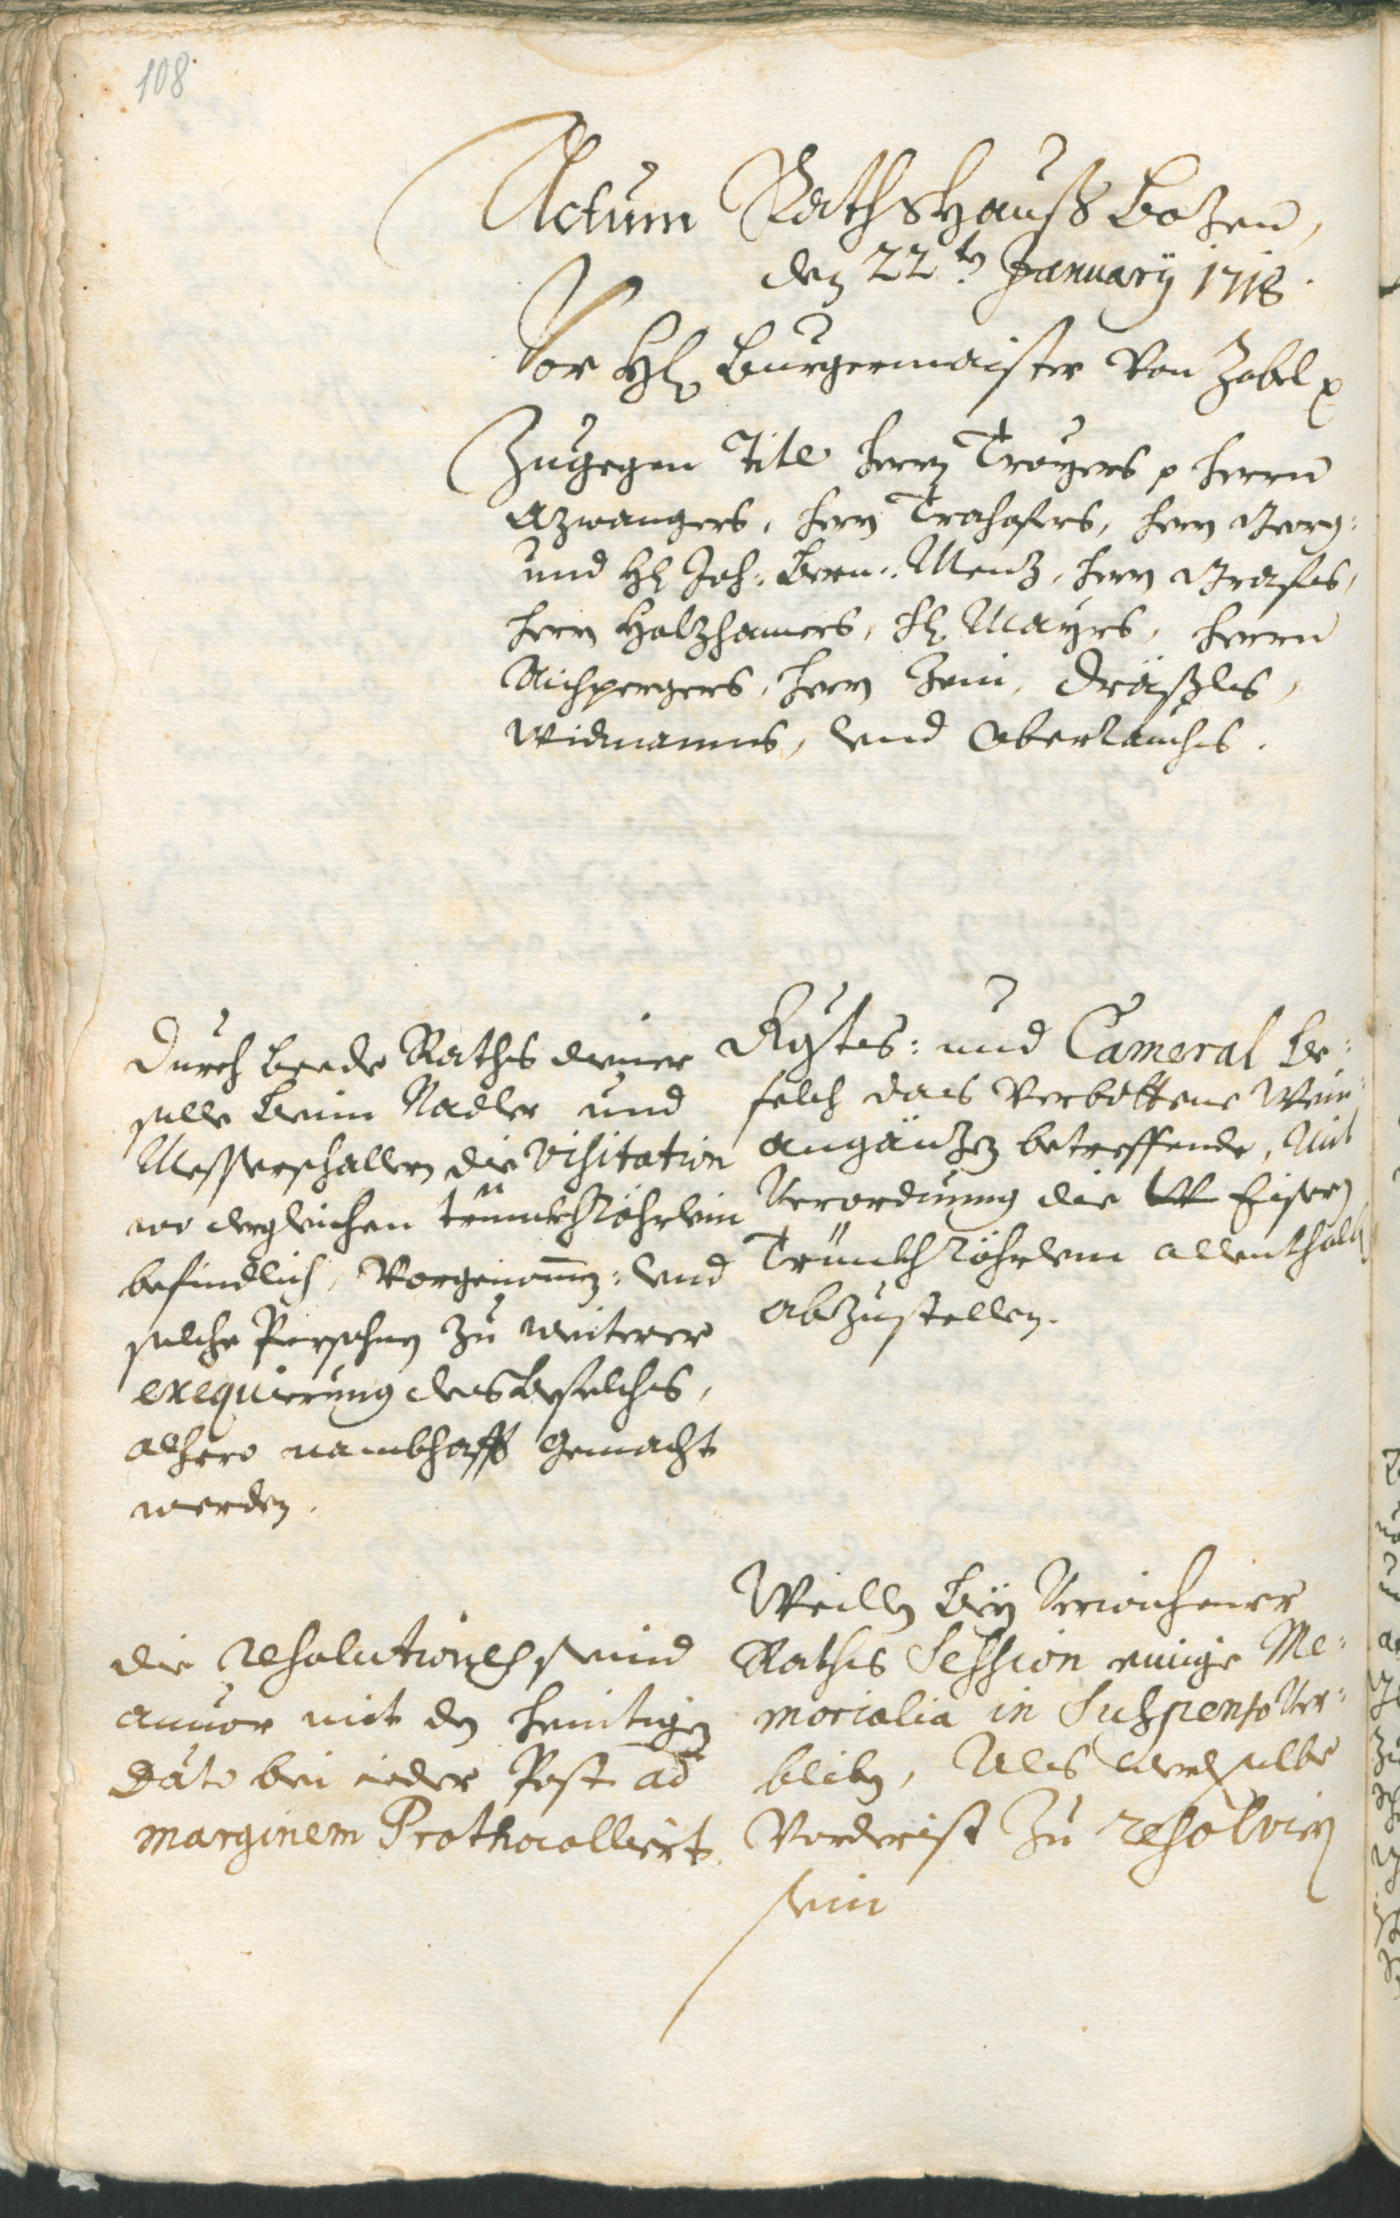 108
Actum Rathshauß Bozen,
den 22ten January 1718.
Vor Hl Burgermaister Von Zobel p
Zugegen Titl herrn Troyers p herrn
Azwangers, herrn Trahofers, herrn Georg:
und Hl Joh: Bern: Menz, herrn Grafes,
herrn Holzhamers, Hl Mayrs, herrn
Aichpergers, herrn Zeni, Dräxles,
Widmanns, und Oberlauchs.
Durch beede Raths diener
solle beim Nadler und
Messerschallern die Visitation
wo dergleichen trünckhröhrlein
befindlich, Vorgenommen: und
solche Persohnen zu weiterer
exequierung des befelchs,
alhero nambhafft gemacht
werden.
Rgts: und Cameral be:
felch das Verbottene Wein:
angänzen betreffende, Mit
Verordnung die Eisern
Trünckhröhrlein allenthalb
abzustellen.
die resolutiones seind
anuor mit den heintigen
Dato bei ieder Post ad
marginem Prothocolliert.
Weillen bey Verwichener
Raths Session einige Me:
morialia in Suspenso Ver:
bliben, Als werden selbe
Vorderist zu resolviern
sein